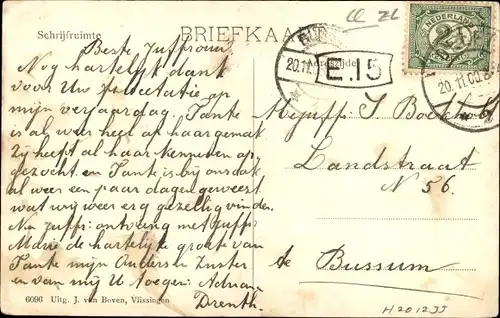 Schrijfruimte BRIEFKAART
Adreszijde
20.11
E.15
NEDERLAND
2½
20.11.09.8
Beste Juffrouw
Nog hartelijk dank
voor Uw felicitatie op
mijn verjaardag. Tante
is al weer heel op haar gemak
Zij heeft al haar kennissen op
gezocht en Tante is bij ons dak
al weer een paar dagen geweest
wat wij weer erg gezellig vinden.
Nu juffr: ontvang met Juffr
Marie de hartelijke groeten van
Tante mijn Ouders en Zuster
en van mij U toegen: Adriana
Drenth.
Mejuffr: J Boekholt
Landstraat
N 56.
te Bussum
6096 Uitg. J. van Boven, Vlissingen
H2012JJ